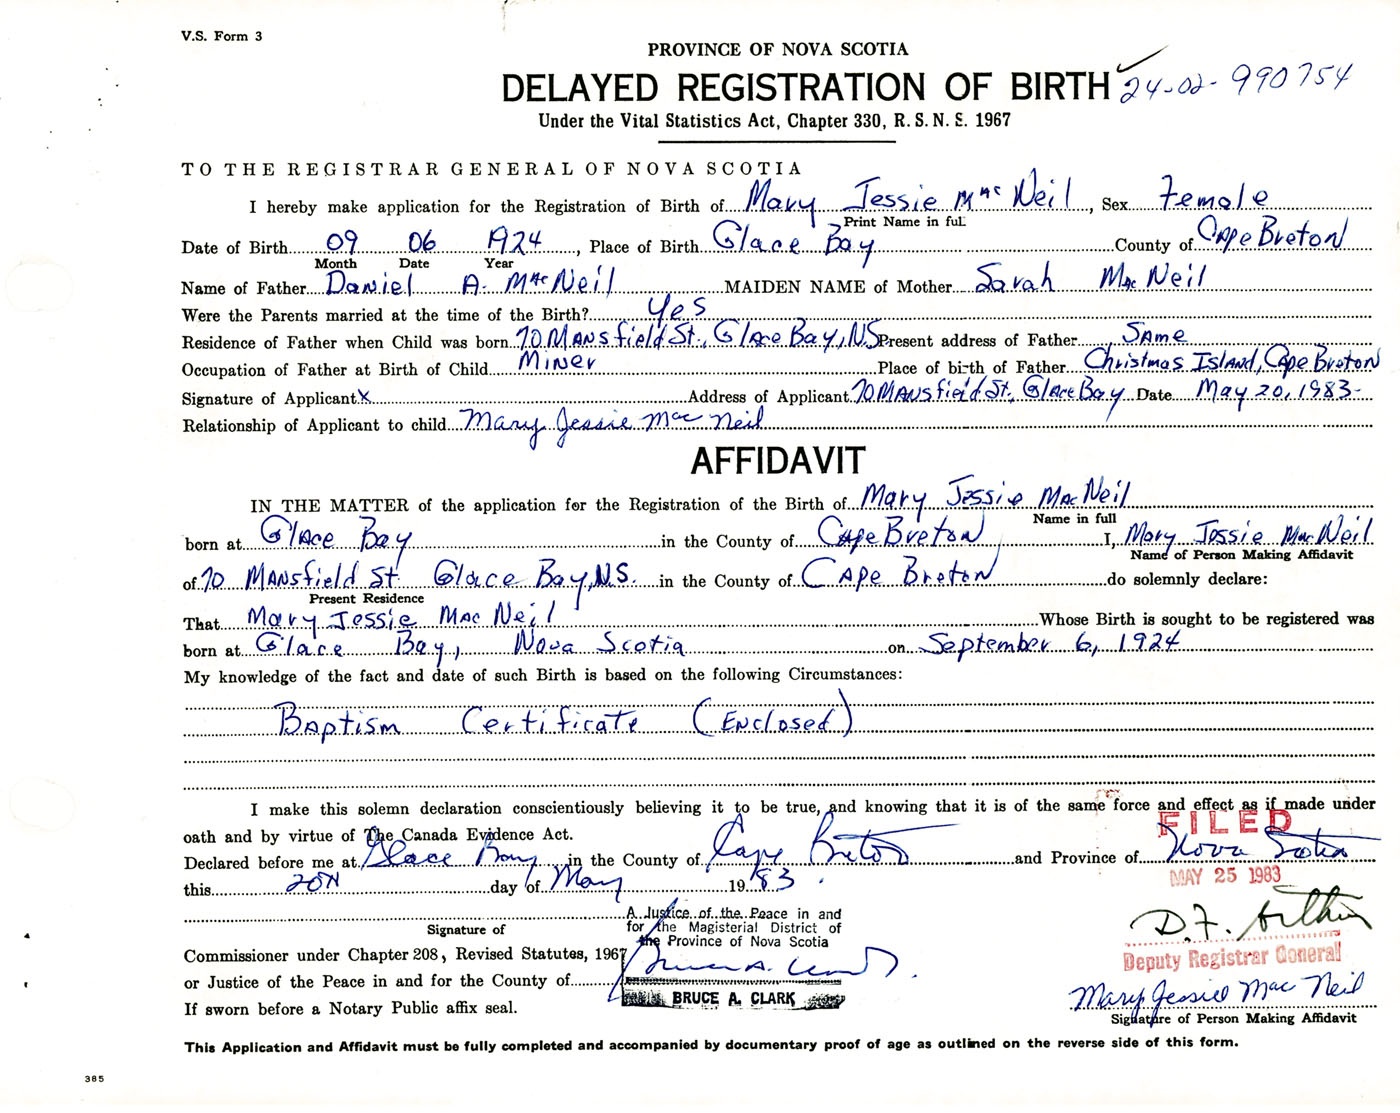 V.S. Form 3
PROVINCE OF NOVA SCOTIA
DELAYED REGISTRATION OF BIRTH 24-02-990754
Under the Vital Statistics Act, Chapter 330, R. S. N. S. 1967
TO THE REGISTRAR GENERAL OF NOVA SCOTIA
I hereby make application for the Registration of Birth of Mary Jessie MacNeil, Sex Female
Print Name in full
Date of Birth 09 06 1924, Place of Birth Glace Bay County of Cape Breton
Month Date Year
Name of Father Daniel A. MacNeil MAIDEN NAME of Mother Sarah MacNeil
Were the Parents married at the time of the Birth? Yes
Residence of Father when Child was born 70 Mansfield St., Glace Bay, N.S. Present address of Father Same
Occupation of Father at Birth of Child Miner Place of birth of Father Christmas Island, Cape Breton
Signature of Applicant X Address of Applicant 70 Mansfield St., Glace Bay Date May 20, 1983
Relationship of Applicant to child Mary Jessie MacNeil
AFFIDAVIT
IN THE MATTER of the application for the Registration of the Birth of Mary Jessie MacNeil
Name in full
born at Glace Bay in the County of Cape Breton I, Mary Jessie MacNeil
Name of Person Making Affidavit
of 70 Mansfield St Glace Bay, N.S. in the County of Cape Breton do solemnly declare:
Present Residence
That Mary Jessie MacNeil Whose Birth is sought to be registered was
born at Glace Bay, Nova Scotia on September 6, 1924
My knowledge of the fact and date of such Birth is based on the following Circumstances:
Baptism Certificate (Enclosed)
I make this solemn declaration conscientiously believing it to be true, and knowing that it is of the same force and effect as if made under
oath and by virtue of The Canada Evidence Act.
FILED
Declared before me at Glace Bay in the County of Cape Breton and Province of Nova Scotia
this 20th day of May 1983.
MAY 25 1983
A Justice of the Peace in and
for the Magisterial District of
the Province of Nova Scotia
D.F. Arthur
Signature of
Commissioner under Chapter 208, Revised Statutes, 1967
Deputy Registrar General
or Justice of the Peace in and for the County of
Bruce A. Clark
BRUCE A. CLARK
Mary Jessie MacNeil
If sworn before a Notary Public affix seal.
Signature of Person Making Affidavit
This Application and Affidavit must be fully completed and accompanied by documentary proof of age as outlined on the reverse side of this form.
385